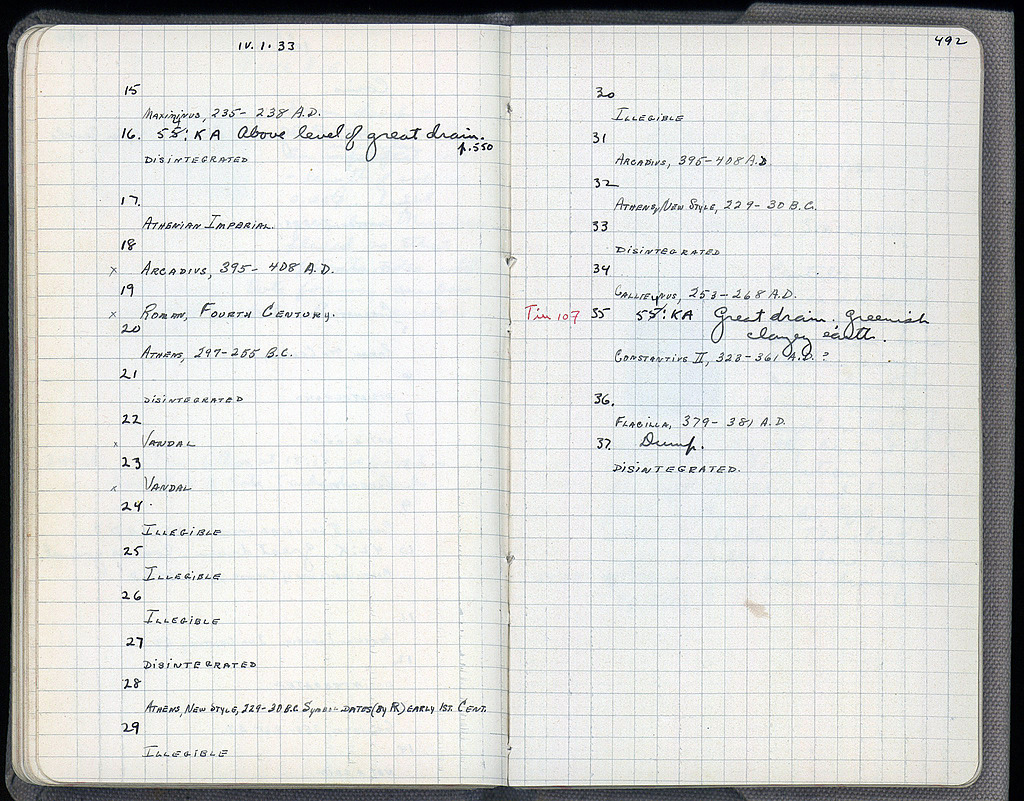 IV. 1. 33
15
MAXIMINUS, 235-238 A.D.
16. 55: KA Above level of great drain.
p. 550
DISINTEGRATED
17.
ATHENIAN IMPERIAL.
18
x ARCADIUS, 395-408 A.D.
19
x ROMAN, FOURTH CENTURY.
20
ATHENS, 297-255 B.C.
21
DISINTEGRATED
22
x VANDAL
23
x VANDAL
24
ILLEGIBLE
25
ILLEGIBLE
26
ILLEGIBLE
27
DISINTEGRATED
28
ATHENS, NEW STYLE, 229-30 B.C. SYMBOL DATES (BY R) EARLY 1ST. CENT.
29
ILLEGIBLE
492
30
ILLEGIBLE
31
ARCADIUS, 395-408 A.D.
32
ATHENS, NEW STYLE, 229-30 B.C.
33
DISINTEGRATED
34
GALLIENUS, 253-268 A.D.
Tin 107 35 55: KA Great drain. Greenish
clayey earth.
CONSTANTIUS II, 328-361 A.D. ?
36.
FLACILLA, 379-381 A.D.
37. Dump.
DISINTEGRATED.